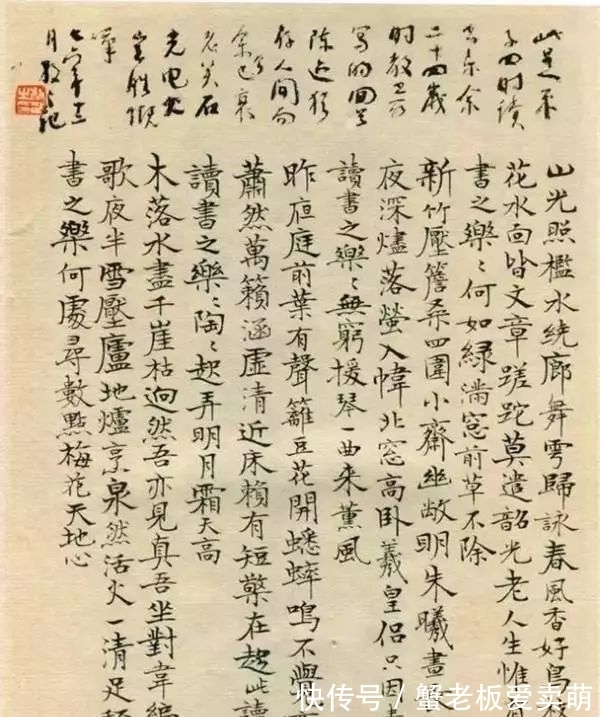 此是朱
子四時讀
書樂余
二十四歲
寫的
陳迹猶
存人間而
余已衰
老矣石
光電火
豈勝慨
嘆
七六年十二
月 記
山光照檻水繞廊舞雩歸詠春風香好鳥枝
花水面皆文章蹉跎莫遣韶光老人生惟
書之樂〻何如綠滿窓前草不除
新竹壓簷桑四圍小齋幽敞明朱曦晝長
夜深燼落螢入幃北窓高臥羲皇侶只因
讀書之樂〻無窮援琴一曲来薰風
昨夜庭前葉有聲籬豆花開蟋蟀鳴不覺
蕭然萬籟涵虛清近床賴有短檠在趁此讀
讀書之樂〻陶〻起弄明月霜天高
木落水盡千崖枯迥然吾亦見真吾坐對韋編
歌夜半雪壓廬地爐烹泉然活火一清足稱
書之樂何處尋數點梅花天地心
快传号/蟹老板爱卖萌